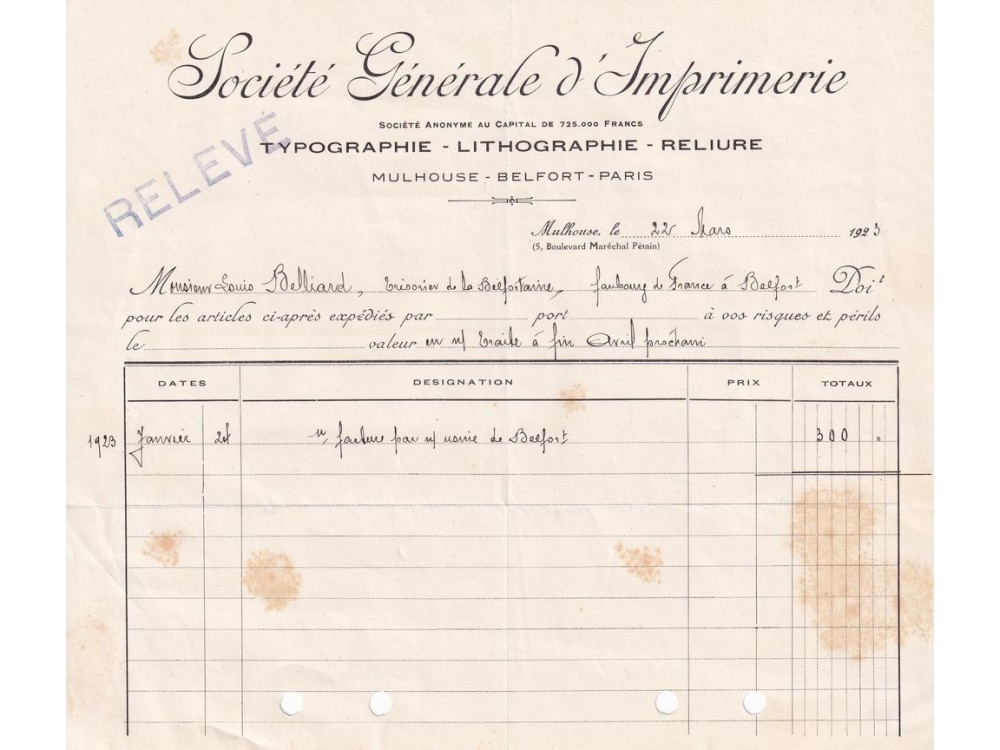 Société Générale d'Imprimerie
SOCIÉTÉ ANONYME AU CAPITAL DE 725.000 FRANCS
RELEVÉ
TYPOGRAPHIE - LITHOGRAPHIE - RELIURE
MULHOUSE - BELFORT - PARIS
Mulhouse, le 22 Mars 1923
(5, Boulevard Maréchal Pétain)
Monsieur Louis Belliard, Trésorier de la Belfortaine, faubourg de France à Belfort Doit
pour les articles ci-après expédiés par port à vos risques et périls
le valeur en n/ traite à fin Avril prochain
DATES DESIGNATION PRIX TOTAUX
1923 Janvier facture par n/ usine de Belfort 300 "